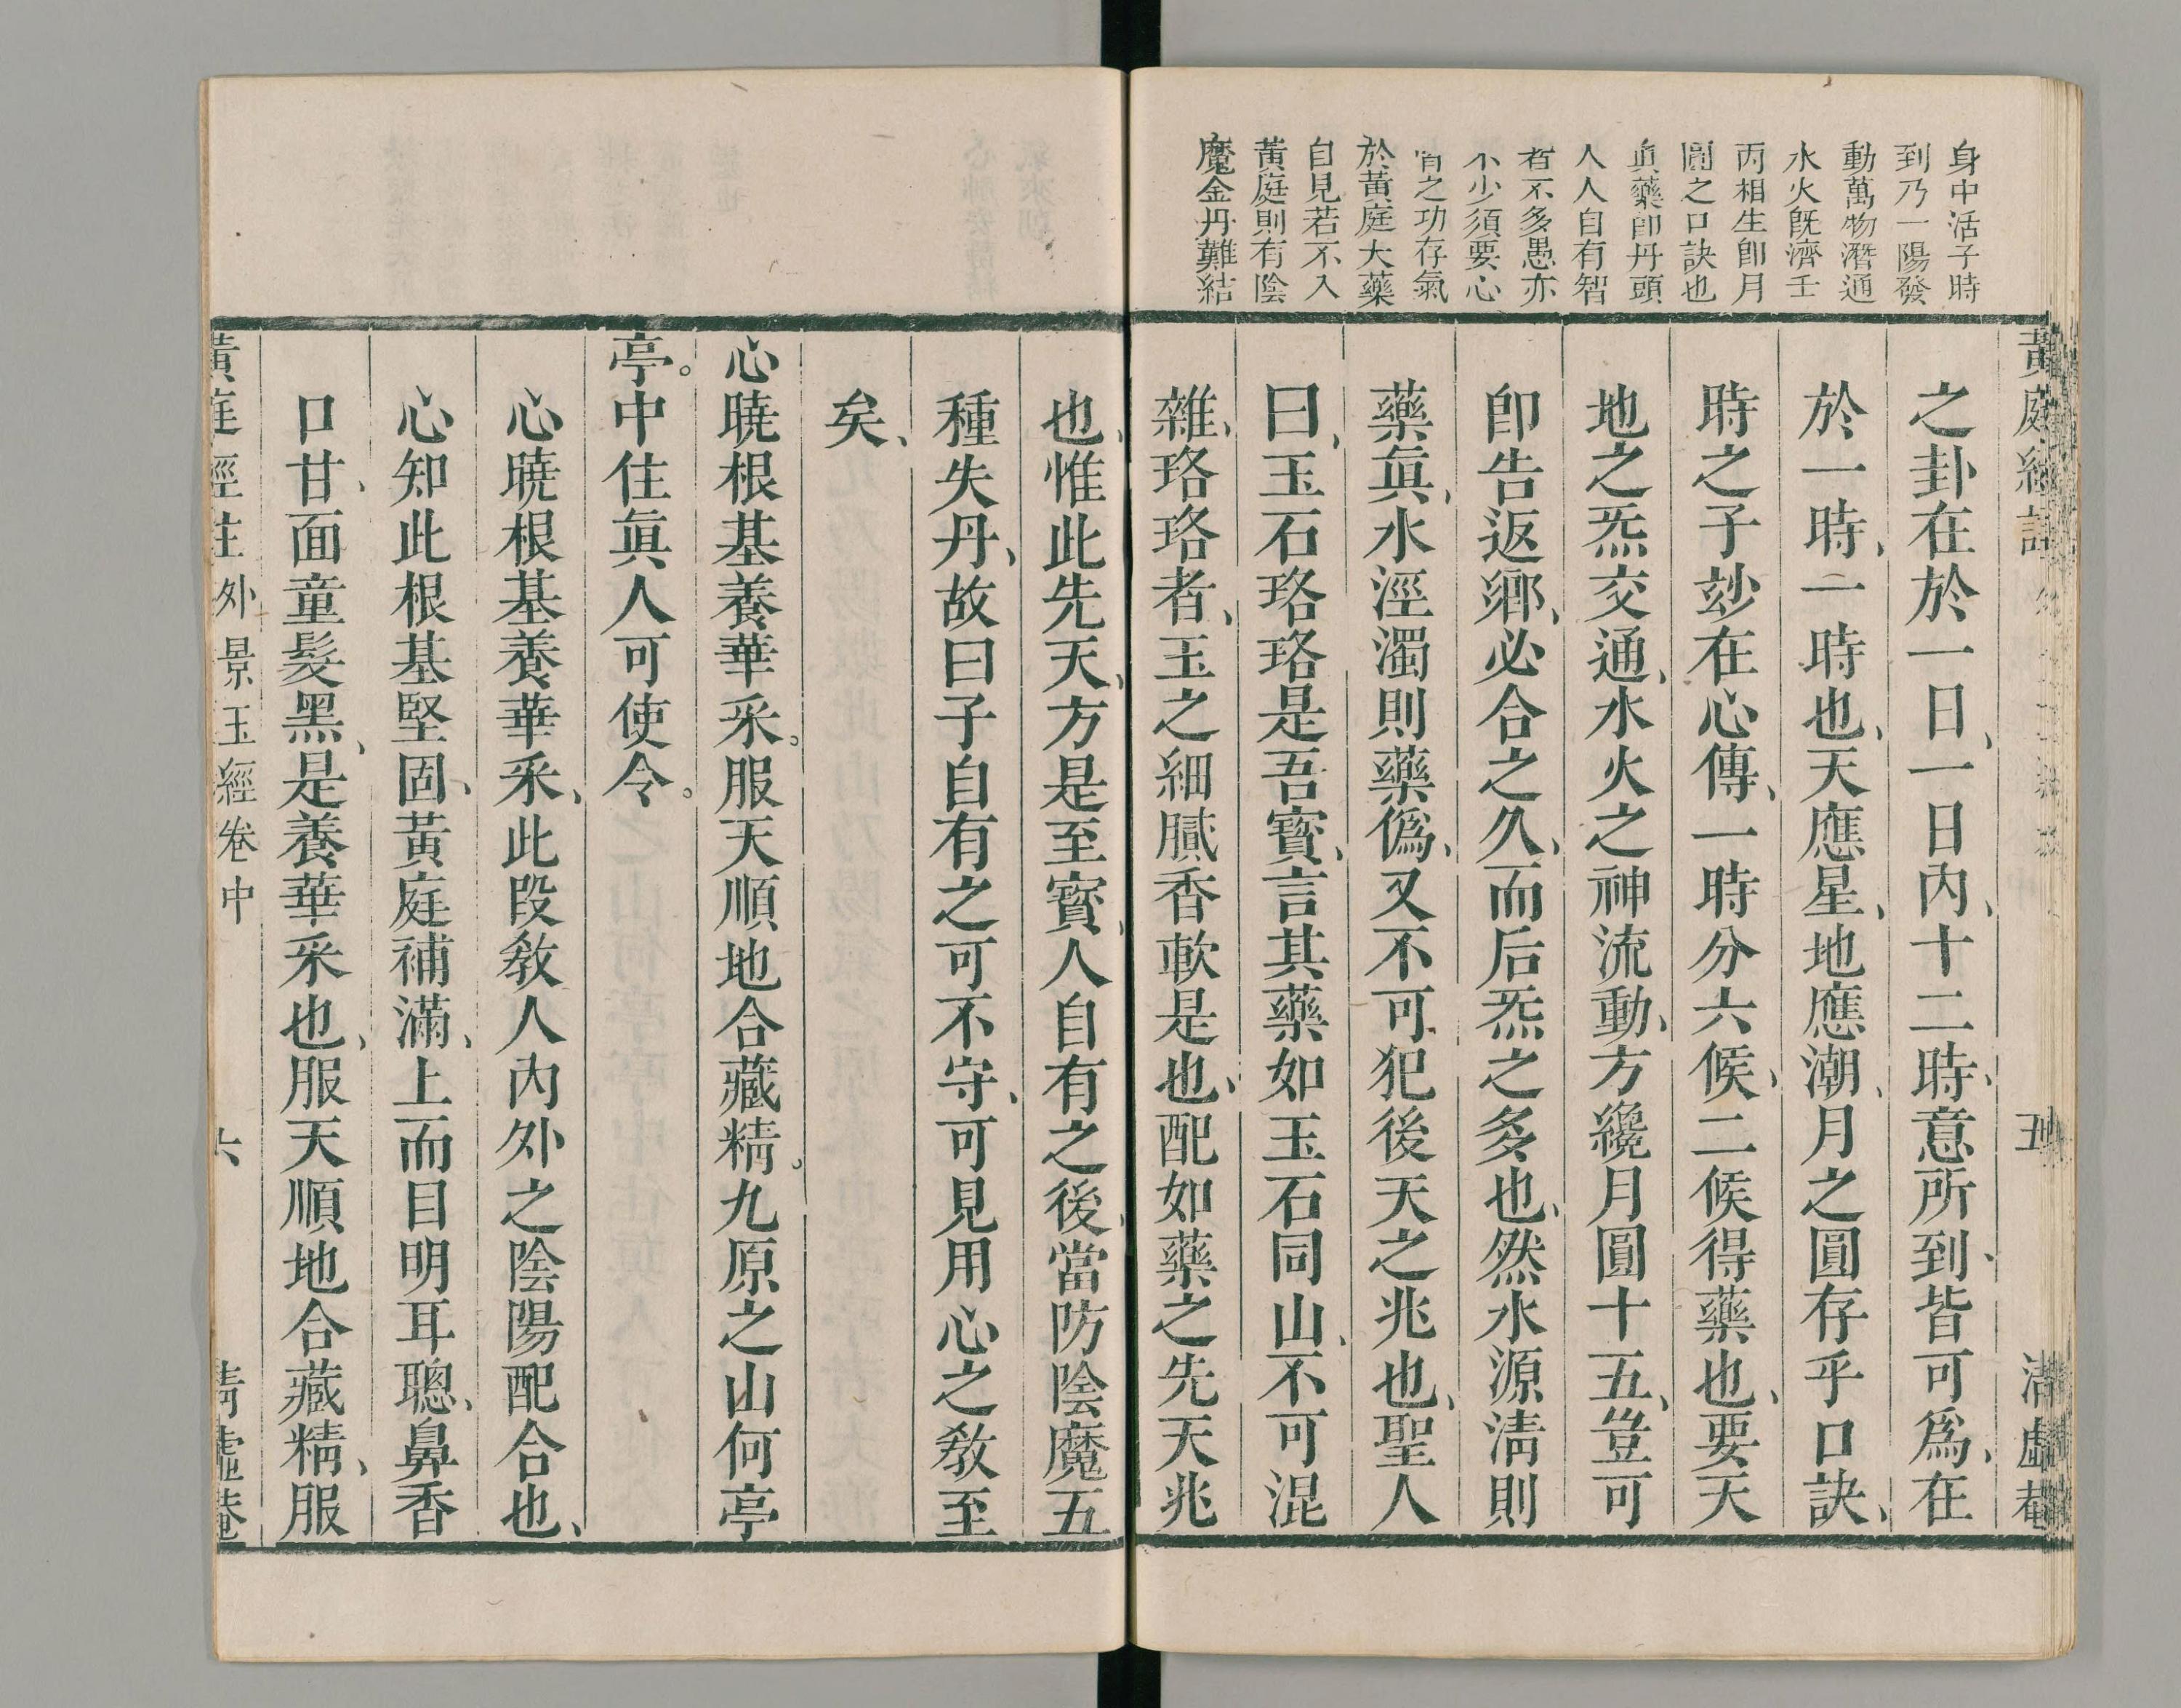 身中活子時
到乃一陽發
動萬物潛通
水火既濟壬
丙相生卽月
圓之口訣也
眞藥卽丹頭
人人自有智
者不多愚亦
不少須要心
之功存氣
於黃庭大藥
自見若不入
黃庭則有陰
魔金丹難結
黃庭經註 五 清虛菴
之卦在於一日、一日內、十二時、意所到、皆可爲、在
於一時、一時也、天應星、地應潮、月之圓存乎口訣、
時之子玅在心傳、一時分六候、二候得藥也、要天
地之炁交通、水火之神流動、方纔月圓十五、豈可
卽告返鄉、必合之久、而后炁之多也、然水源淸則
藥眞、水濁則藥僞、又不可犯後天之兆也、聖人
曰、玉石珞珞是吾寳、言其藥如玉石同山、不可混
雜、珞珞者、玉之細膩香軟是也、配如藥之先天兆
也、惟此先天、方是至寳、人自有之後、當防陰魔五
種失丹、故曰子自有之可不守、可見用心之敎至
矣、
心曉根基養華采。服天順地合藏精。九原之山何亭
亭。中住眞人可使令。
心曉根基養華采、此段敎人內外之陰陽配合也、
心知此根基堅固、黃庭補滿、上而目明耳聰、鼻香
口甘、面童髮黑、是養華采也、服天順地合藏精、服
黃庭經註 外景玉經卷中 六 淸虛菴